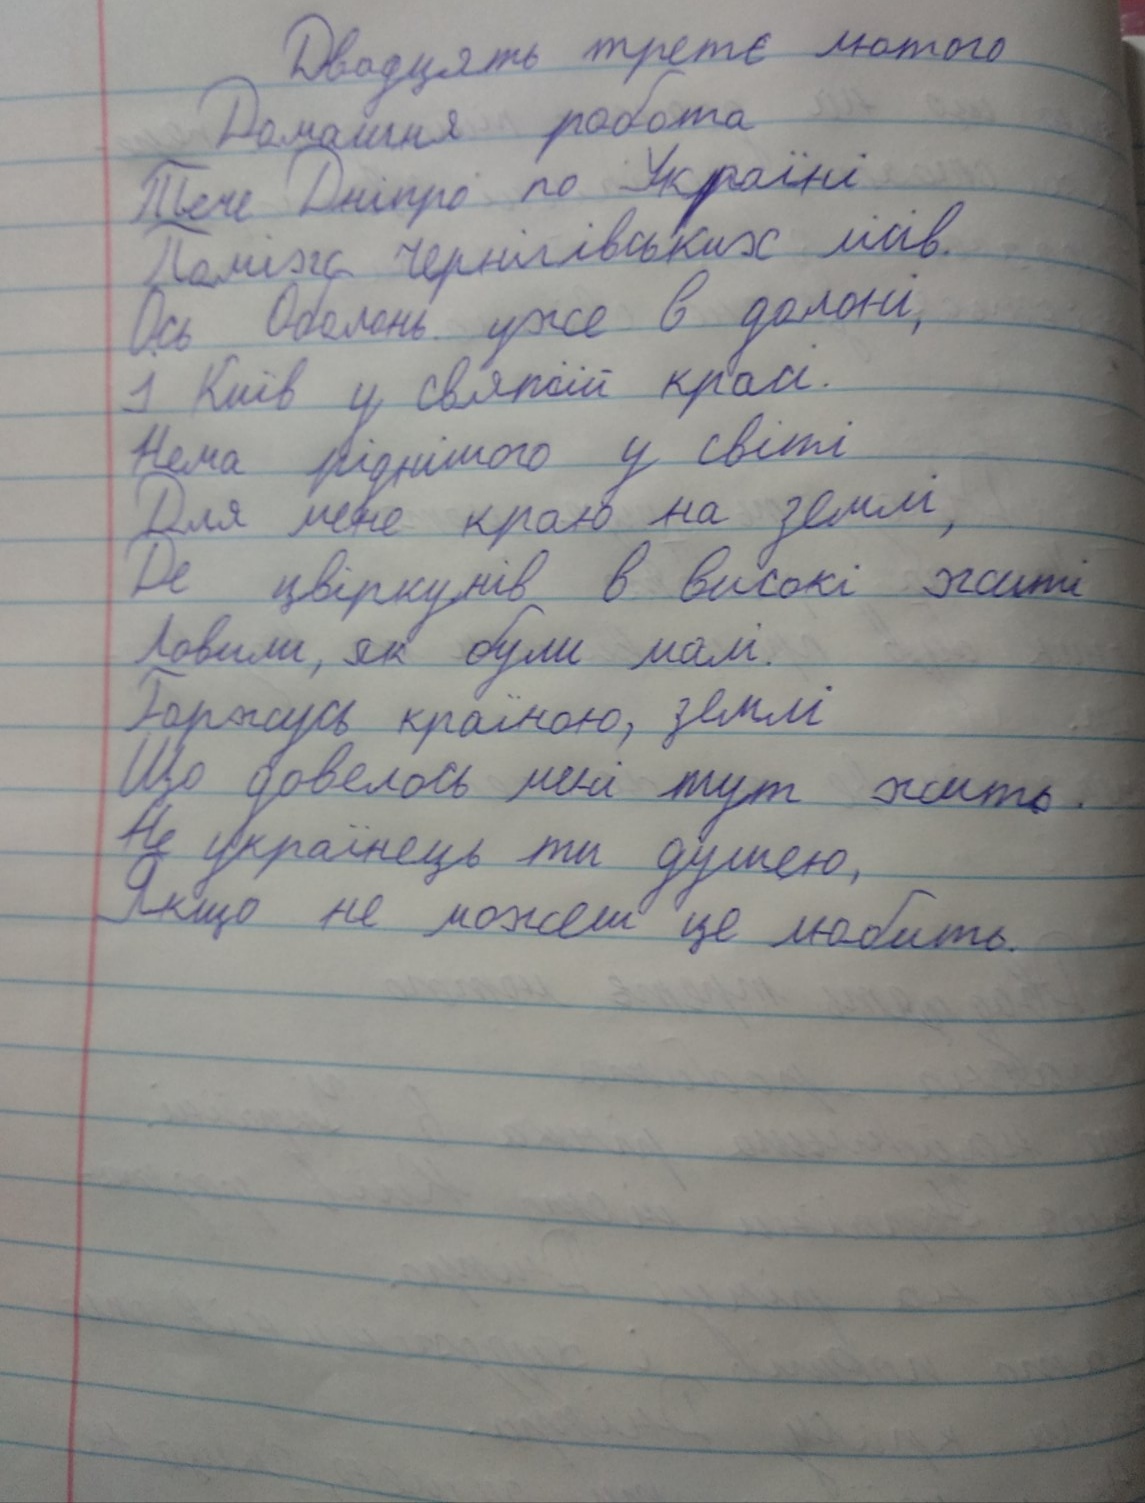 Двадцять третє лютого
Домашня робота
Тече Дніпро по Україні
Поміж чернігівських лісів.
Ось Оболонь уже в долоні,
І Київ у святій красі.
Нема ріднішого у світі
Для мене краю на землі,
Де цвіркунів в високі житі
Ловили, як були малі.
Горжусь країною, землі
Що довелось мені тут жить.
Не українець ти душею,
Якщо не можеш це любить.